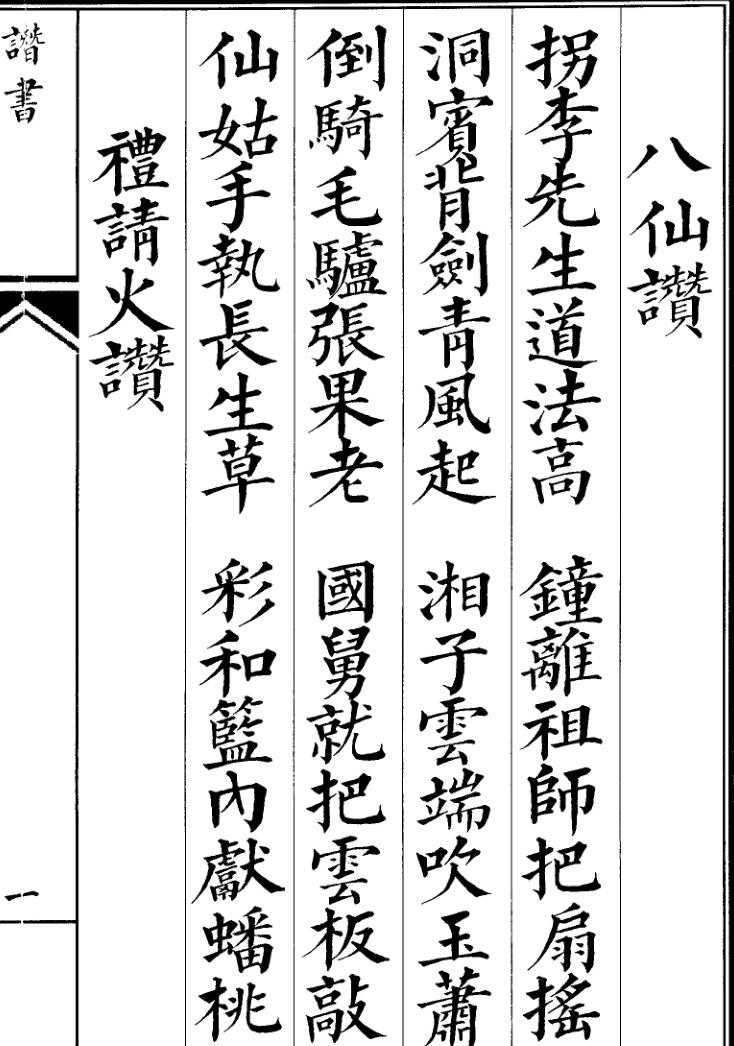 八仙讚
拐李先生道法高　鐘離祖師把扇搖
洞賓背劍青風起　湘子雲端吹玉蕭
倒騎毛驢張果老　國舅就把雲板敲
仙姑手執長生草　彩和籃內獻蟠桃
禮請火讚
讚書
一